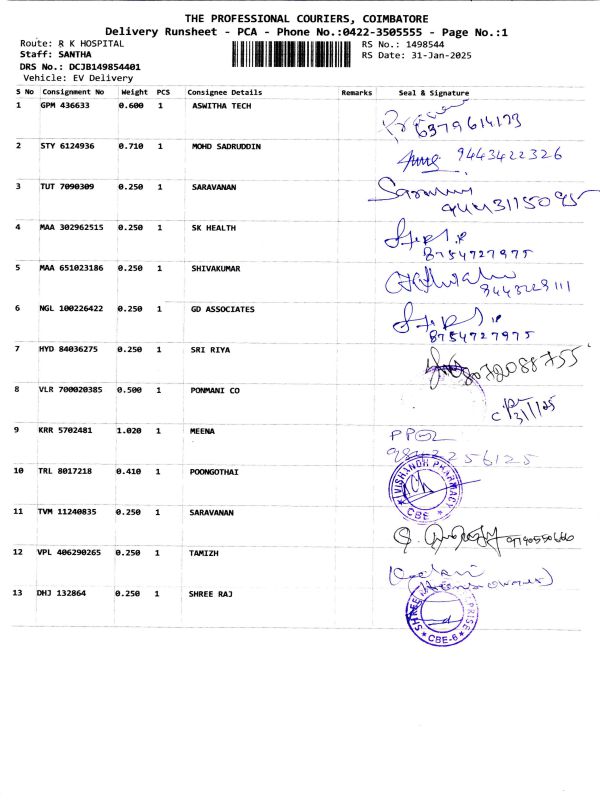 THE PROFESSIONAL COURIERS, COIMBATORE
Delivery Runsheet - PCA - Phone No.:0422-3505555 - Page No.:1
Route: R K HOSPITAL
Staff: SANTHA
DRS No.: DCJB149854401
Vehicle: EV Delivery
RS No.: 1498544
RS Date: 31-Jan-2025
S No Consignment No Weight PCS Consignee Details Remarks Seal & Signature
1 GPM 436633 0.600 1 ASWITHA TECH
6379614173
2 STY 6124936 0.710 1 MOHD SADRUDDIN
9443422326
3 TUT 7090309 0.250 1 SARAVANAN
4 MAA 302962515 0.250 1 SK HEALTH
8754727975
5 MAA 651023186 0.250 1 SHIVAKUMAR
9443229111
6 NGL 100226422 0.250 1 GD ASSOCIATES
8754727975
7 HYD 84036275 0.250 1 SRI RIYA
8072088755
8 VLR 700020385 0.500 1 PONMANI CO
31/1/25
9 KRR 5702481 1.020 1 MEENA
10 TRL 8017218 0.410 1 POONGOTHAI
PHARMACY
CBE
11 TVM 11240835 0.250 1 SARAVANAN
12 VPL 406290265 0.250 1 TAMIZH
13 DHJ 132864 0.250 1 SHREE RAJ
SHREE
CBE-6